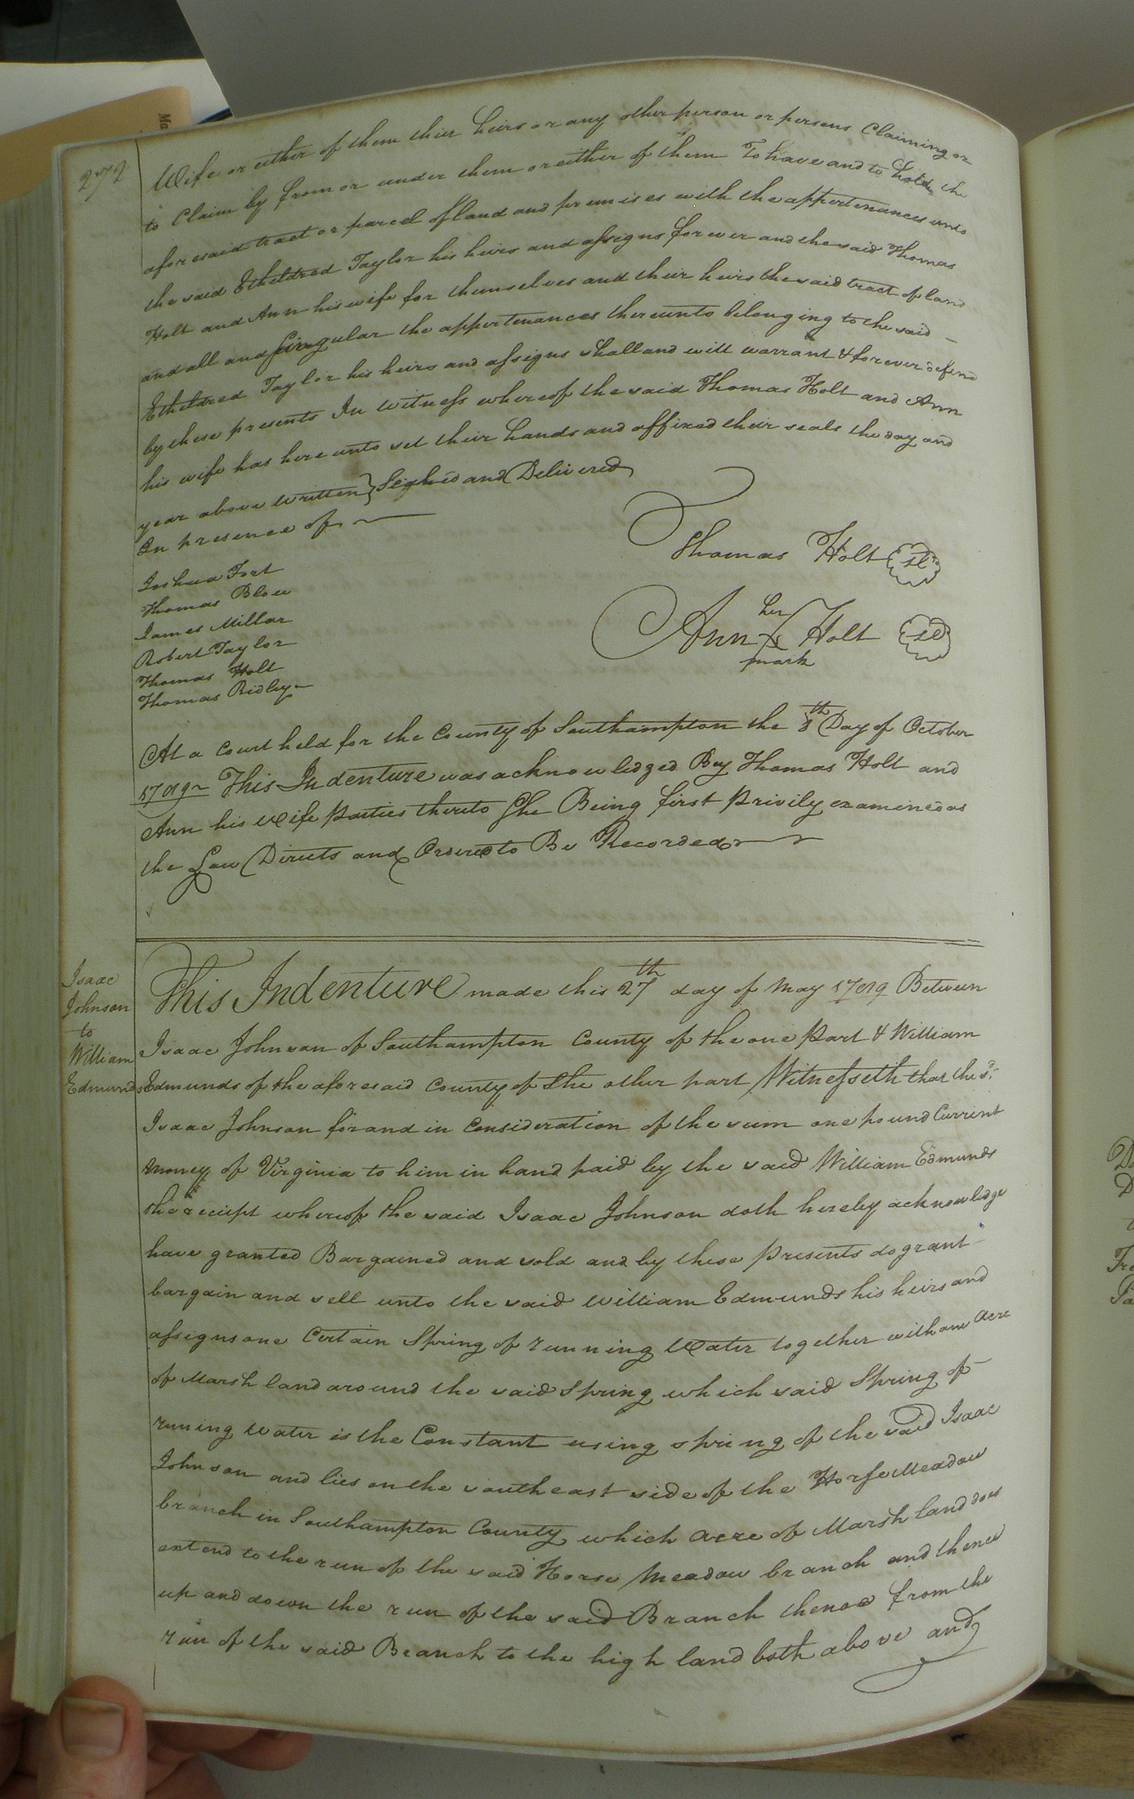 272
Wife or either of them their heirs or any other person or persons Claiming or
to Claim by from or under them or either of them To have and to hold the
aforesaid tract or parcel of land and premises with the appertenances unto
the said Etheldred Taylor his heirs and assigns forever and the said Thomas
Holt and Ann his wife for themselves and their heirs the said tract of land
and all and singular the appertenances thereunto belonging to the said
Etheldred Taylor his heirs and assigns shall and will warrant & forever defend
by these presents In witness whereof the said Thomas Holt and Ann
his wife has here unto set their hands and affixed their seals the day and
year above written} Seghed and Delivered
In presence of
Thomas Holt sl
Joshua Fort
Thomas Blow
James Millar
Robert Taylor
Thomas Holt
Thomas Ridley
her
Ann X Holt sl
mark
At a Court held for the County of Southampton the 8th Day of October
This Indenture was acknowledged By Thomas Holt and
Ann his wife Parties thereto She Being first Privily examined as
the Law Directs and Ordered to Be Recorded
Isaac
Johnson
to
William
Edmunds
This Indenture made this 27th day of May Between
Isaac Johnson of Southampton County of the one Part & William
Edmunds of the aforesaid County of the other part Witnesseth that the sd.
Isaac Johnson for and in Consideration of the sum one pound Current
money of Virginia to him in hand paid by the said William Edmunds
the reciept whereof the said Isaac Johnson doth hereby acknowledge
have granted Bargained and sold and by these Presents do grant
bargain and sell unto the said William Edmunds his heirs and
assigns one Certain Spring of running Water together with one Acre
of Marsh land around the said Spring which said Spring of
runing Water is the Constant using spring of the said Isaac
Johnson and lies on the south east side of the Horse Meadow
branch in Southampton County which Acre of Marsh land does
extend to the run of the said Horse Meadow branch and thence
up and down the run of the said Branch thence from the
run of the said Branch to the high land both above and